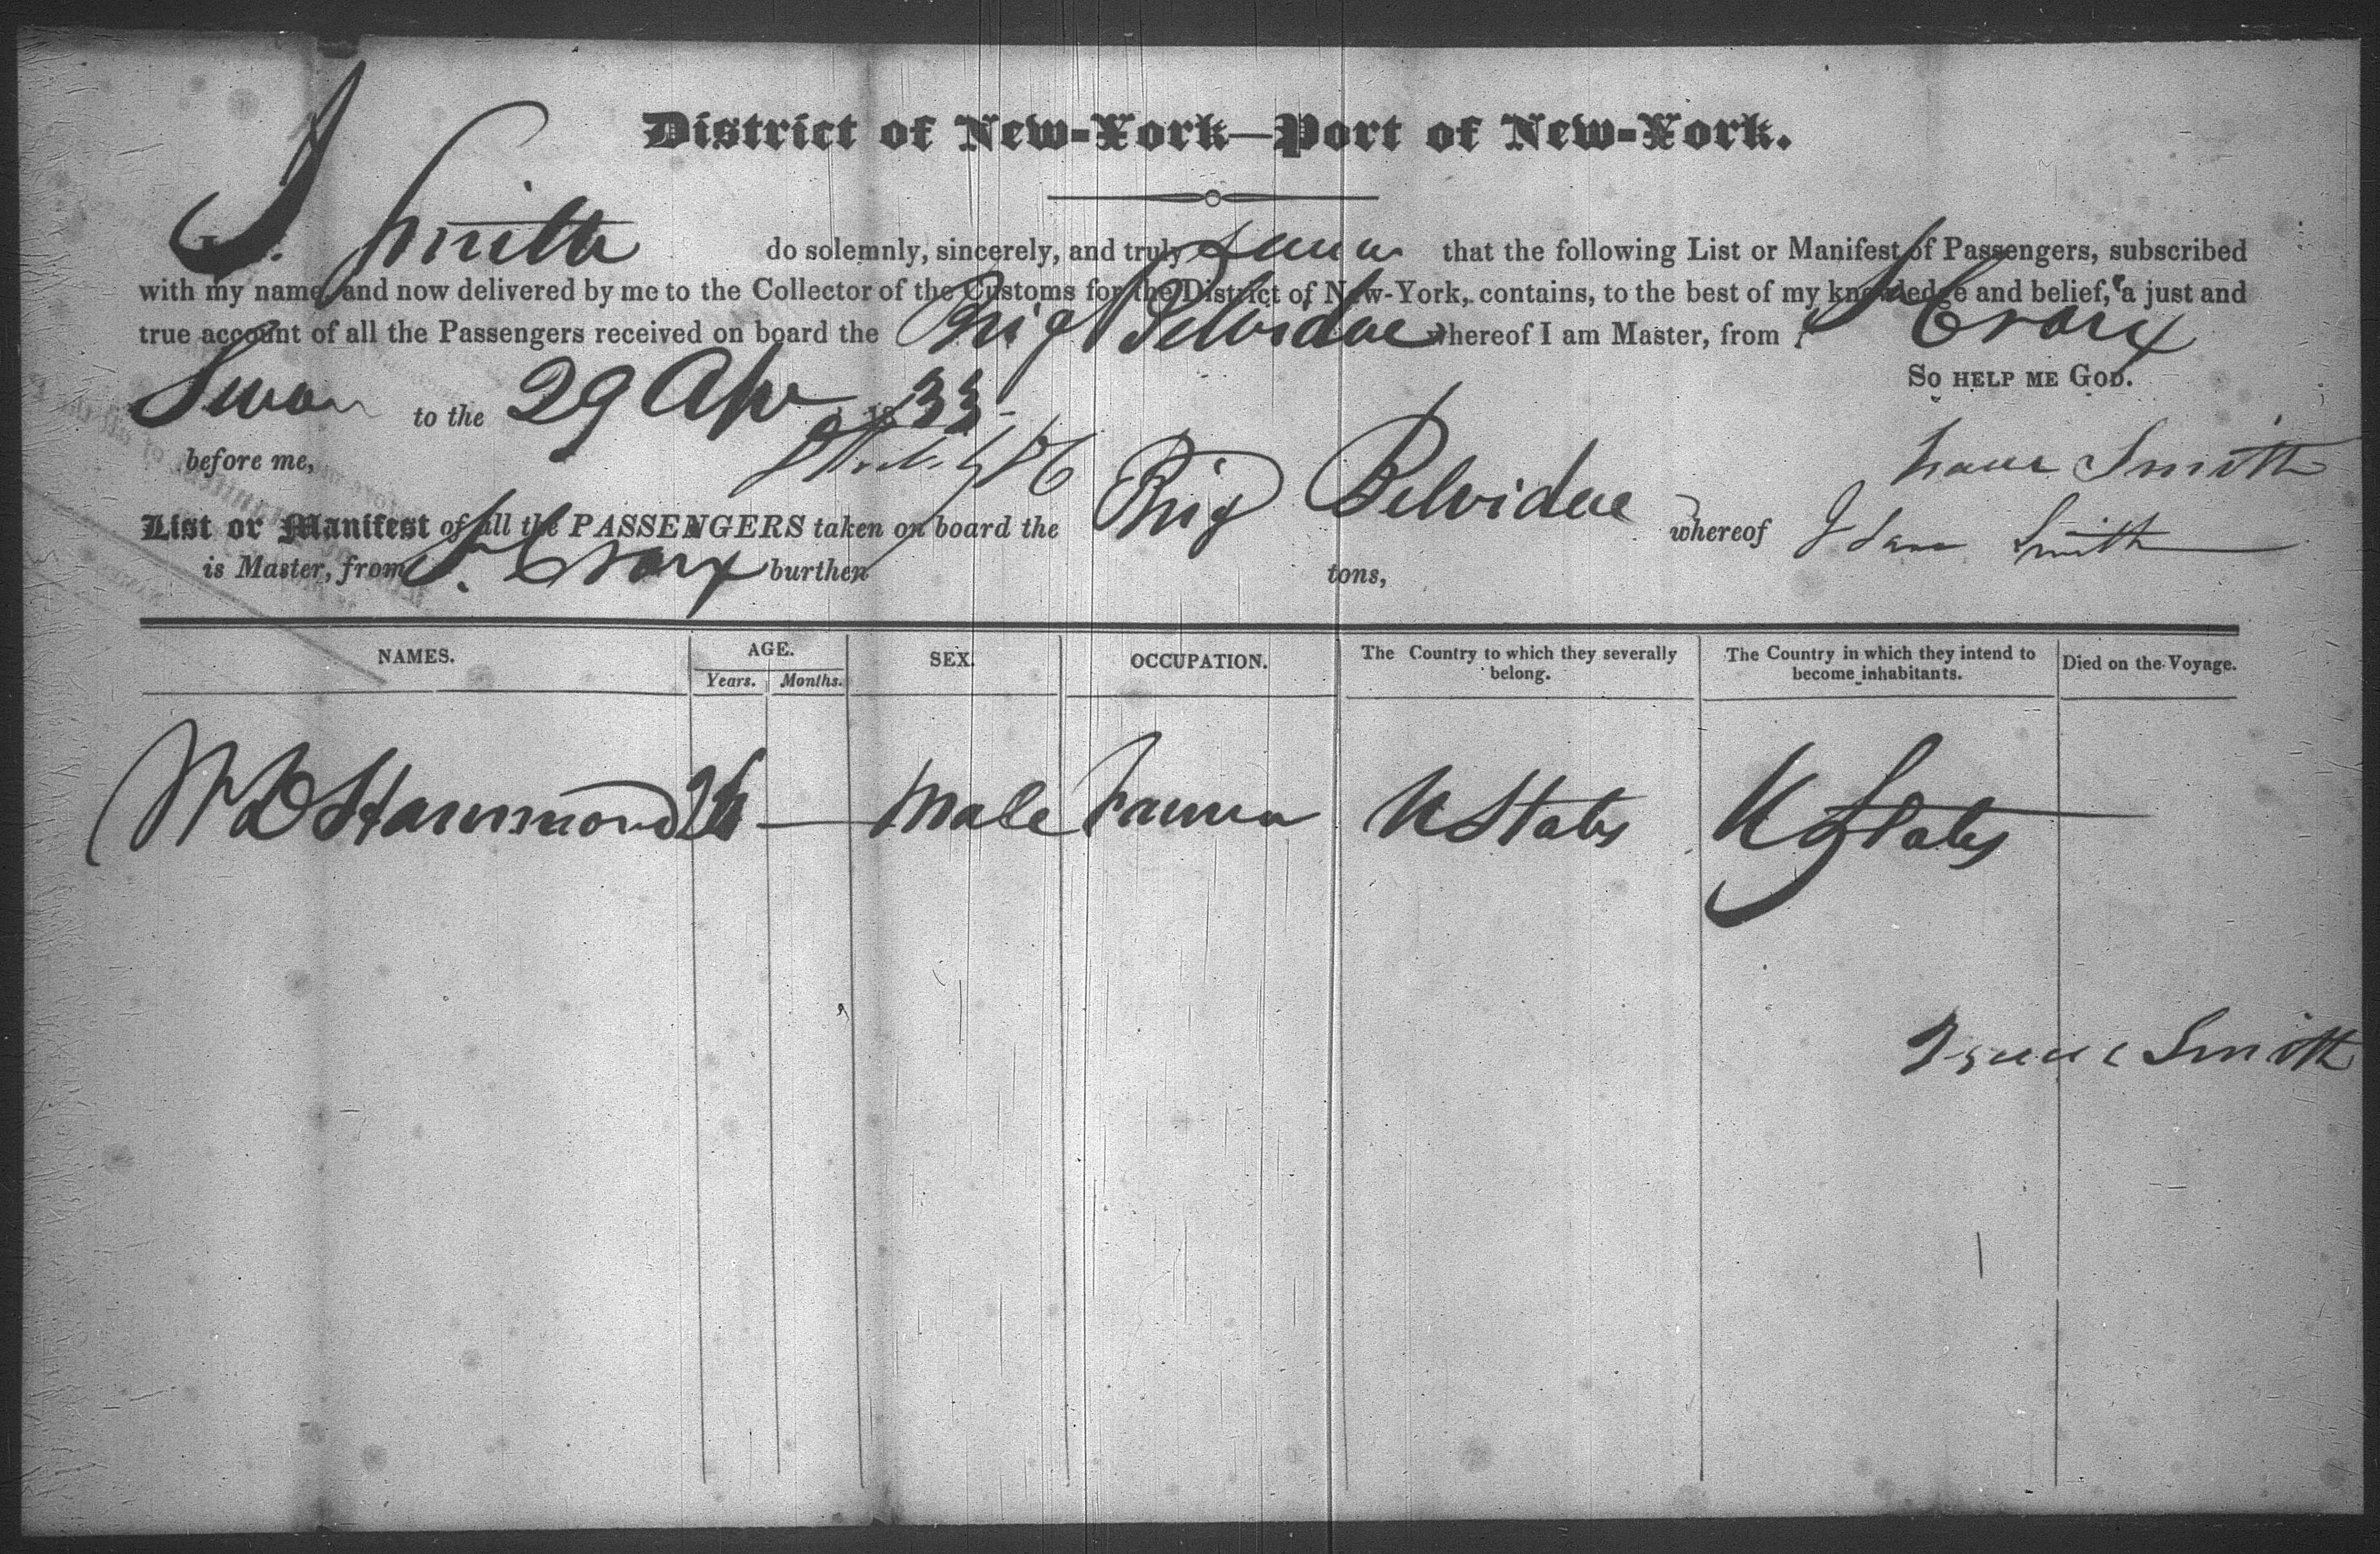 District of New-York—Port of New-York.
I. Smith do solemnly, sincerely, and truly swear that the following List or Manifest of Passengers, subscribed
with my name, and now delivered by me to the Collector of the Customs for the District of New-York, contains, to the best of my knowledge and belief, a just and
true account of all the Passengers received on board the Brig Belvidere whereof I am Master, from St Croix
So help me God.
Sworn to the 29 Apr 1833
Isaac Smith
before me,
List or Manifest of all the PASSENGERS taken on board the Brig Belvidere whereof Isaac Smith
is Master, from St. Croix burthen tons,
NAMES. AGE. SEX. OCCUPATION. The Country to which they severally belong. The Country in which they intend to become inhabitants. Died on the Voyage.
Years. Months.
W D Hammond 26 — Male Farmer U States U States
Isaac Smith